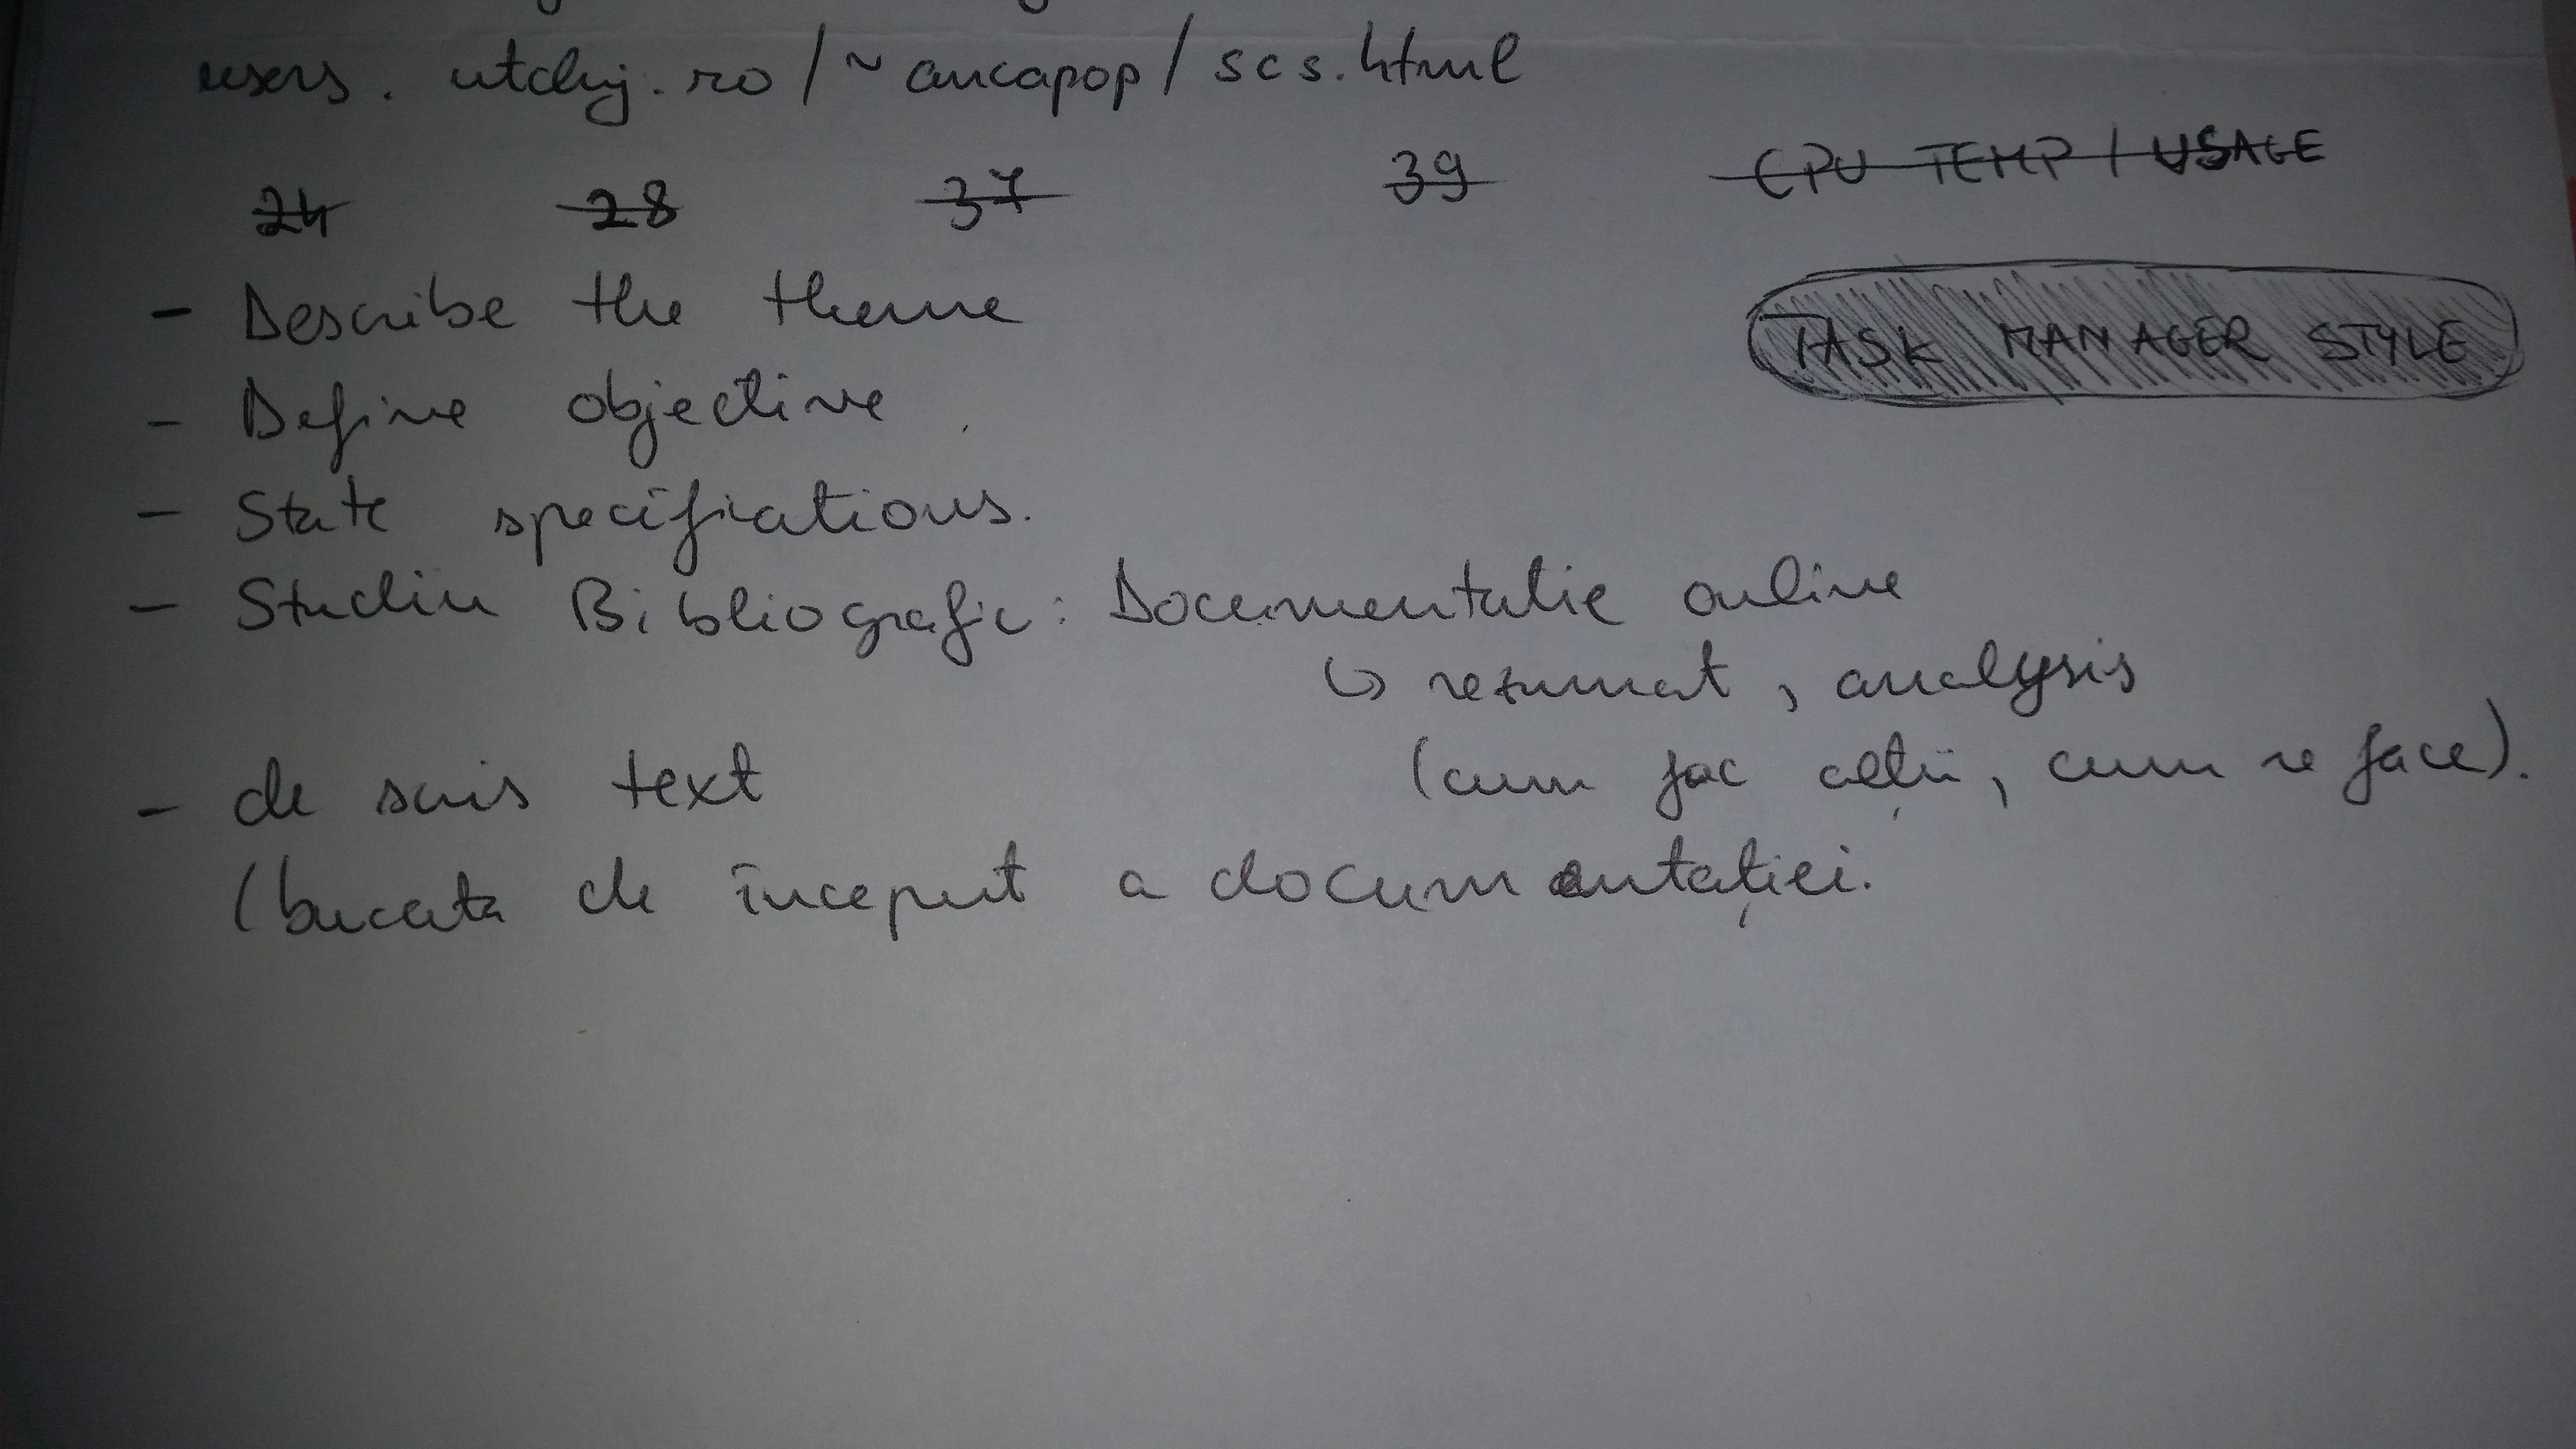 users.utcluj.ro/~ancapop/scs.html
24 28 37 39 CPU TEMP / USAGE
- Describe the theme
TASK MANAGER STYLE
- Define objective
- State specifications.
- Studiu Bibliografic: Documentatie online
↳ rezumat, analysis
(cum fac alții, cum se face).
- de scris text
(bucata de început a documentației.